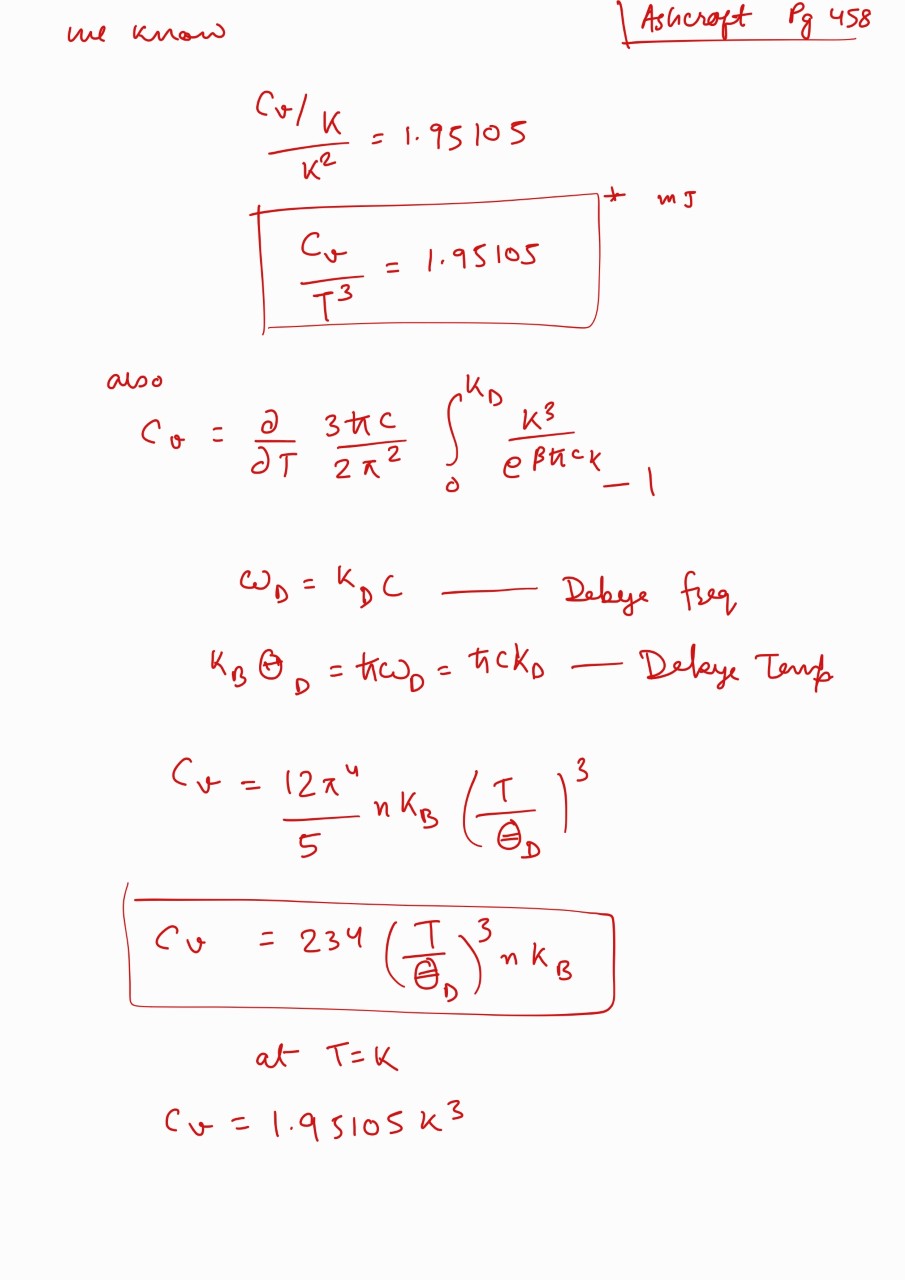 we know
Ashcroft Pg 458
Cv/K / K² = 1.95105
* mJ
Cv / T³ = 1.95105
also
Cv = ∂/∂T 3ℏC / 2π² ∫₀^K_D K³ / e^βℏcK - 1
ω_D = K_D C —— Debye freq
K_B Θ_D = ℏω_D = ℏCK_D — Debye Temp
Cv = 12π⁴ / 5 n K_B (T / Θ_D)³
Cv = 234 (T / Θ_D)³ n K_B
at T=K
Cv = 1.95105 K³